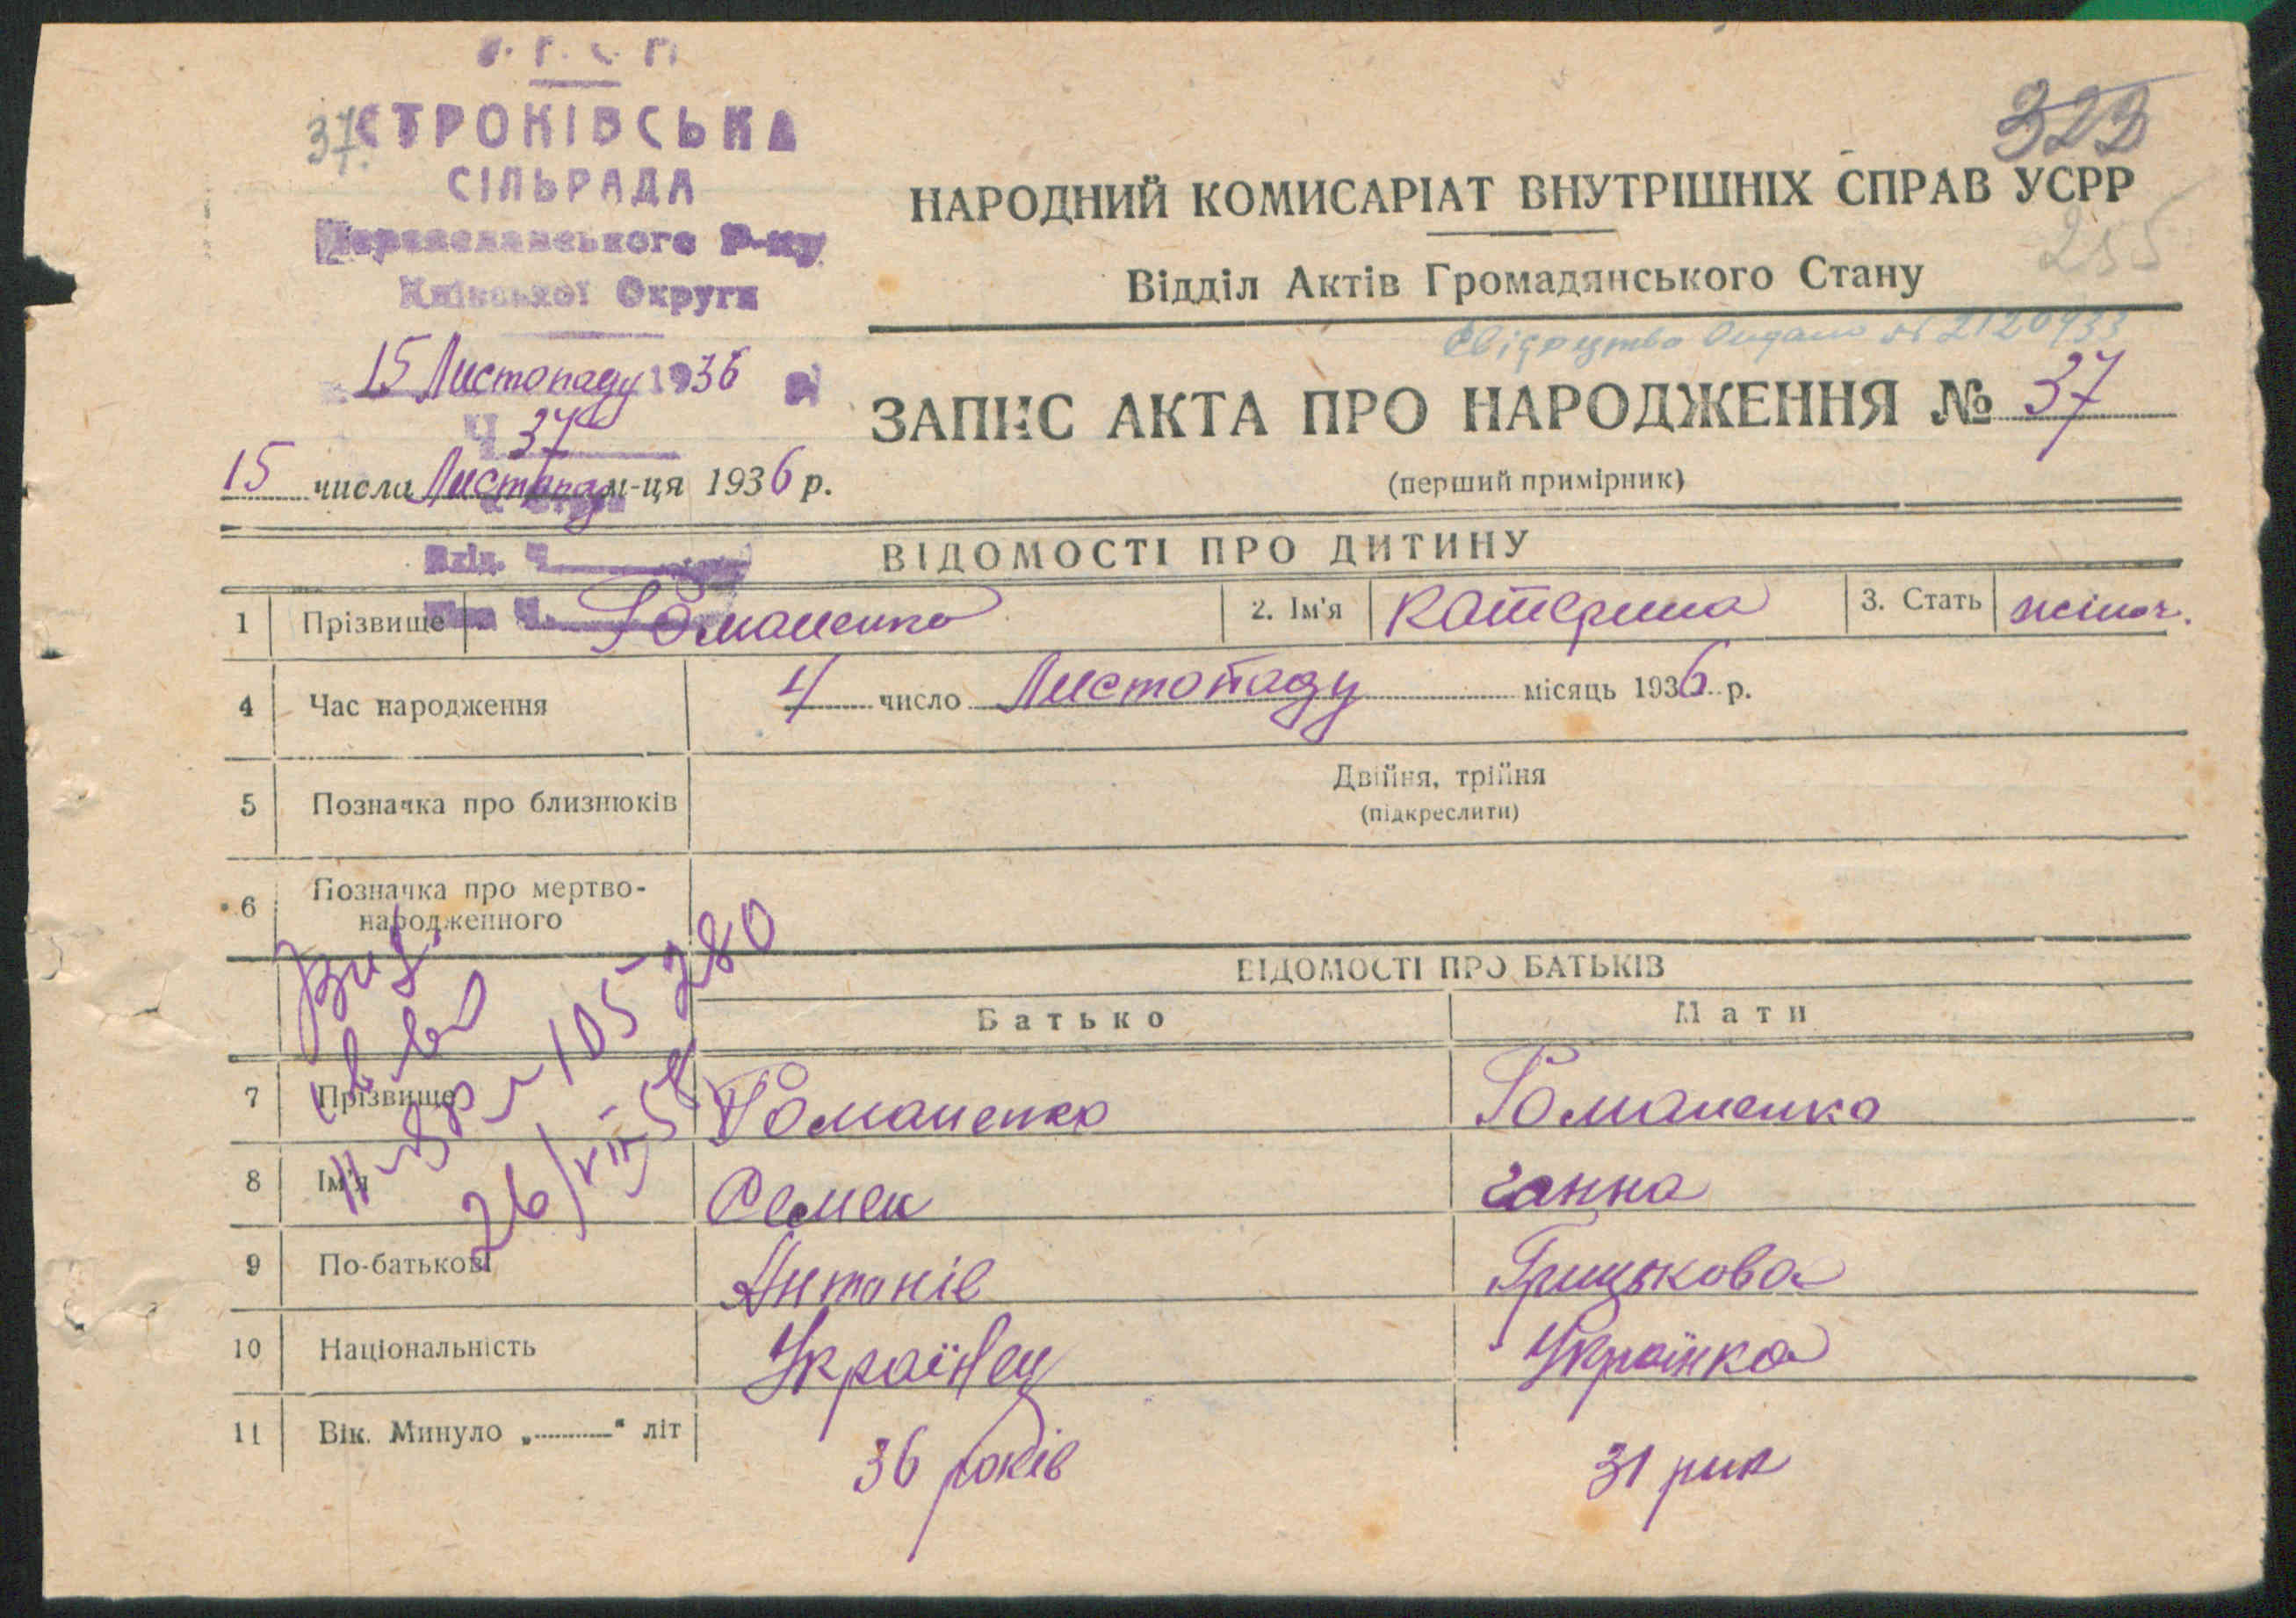 37.
СТРОКІВСЬКА
СІЛЬРАДА
Переяславського Р-ну
Київської Округи
15 Листопаду 1936 р.
Ч 37
323
255
НАРОДНИЙ КОМИСАРІАТ ВНУТРІШНІХ СПРАВ УСРР
Відділ Актів Громадянського Стану
Свідоцтво видано № 2120933
ЗАПИС АКТА ПРО НАРОДЖЕННЯ № 37
(перший примірник)
15 числа Листопад м-ця 1936 р.
ВІДОМОСТІ ПРО ДИТИНУ
1 Прізвище Романенко 2. Ім'я Катерина 3. Стать жіноч.
4 Час народження 4 число Листопаду місяць 1936 р.
5 Позначка про близнюків Двійня, трійня
(підкреслити)
6 Позначка про мертво-
народженного
ВІДОМОСТІ ПРО БАТЬКІВ
Батько Мати
7 Прізвище Романенко Романенко
8 Ім'я Семен Ганна
9 По-батькові Антонів Грицькова
10 Національність Українец Українка
11 Вік. Минуло „ “ літ 36 років 31 рик
105280
26/VIII